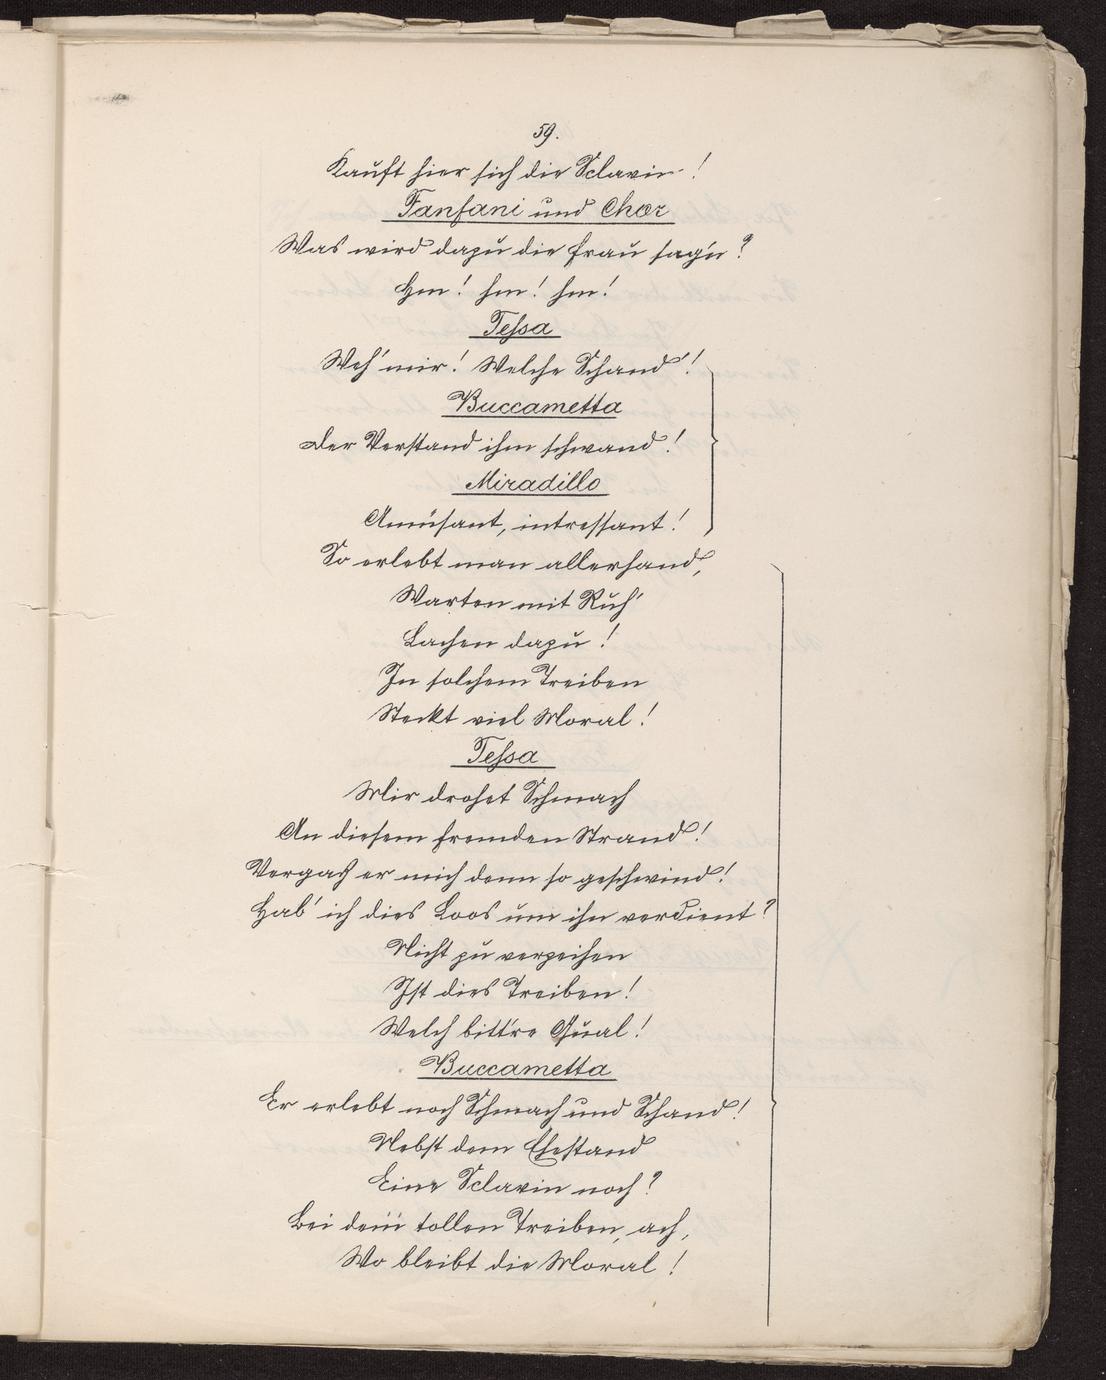 59.
Kauft hier sich die Sclavin!
Fanfani und Chor
Was wird dazu die Frau sag'n?
Hm! hm! hm!
Teſsa
Weh' mir! Welche Schand'!
Buccametta
Der Verstand ihm schwand!
Miradillo
Amüsant, intressant!
So erlebt man allerhand,
Warten mit Ruh'
Lachen dazu!
In solchem Treiben
Steckt viel Moral!
Teſsa
Mir drohet Schmach
An diesem fremden Strand!
Vergaß er mich denn so geschwind!
Hab' ich dies Loos um ihn verdient?
Nicht zu verzeihen
Ist dies Treiben!
Welch bitt're Qual!
Buccametta
Er erlebt noch Schmach und Schand!
Nebst dem Ehestand
Eine Sclavin noch?
Bei dem tollen Treiben, ach,
Wo bleibt die Moral!